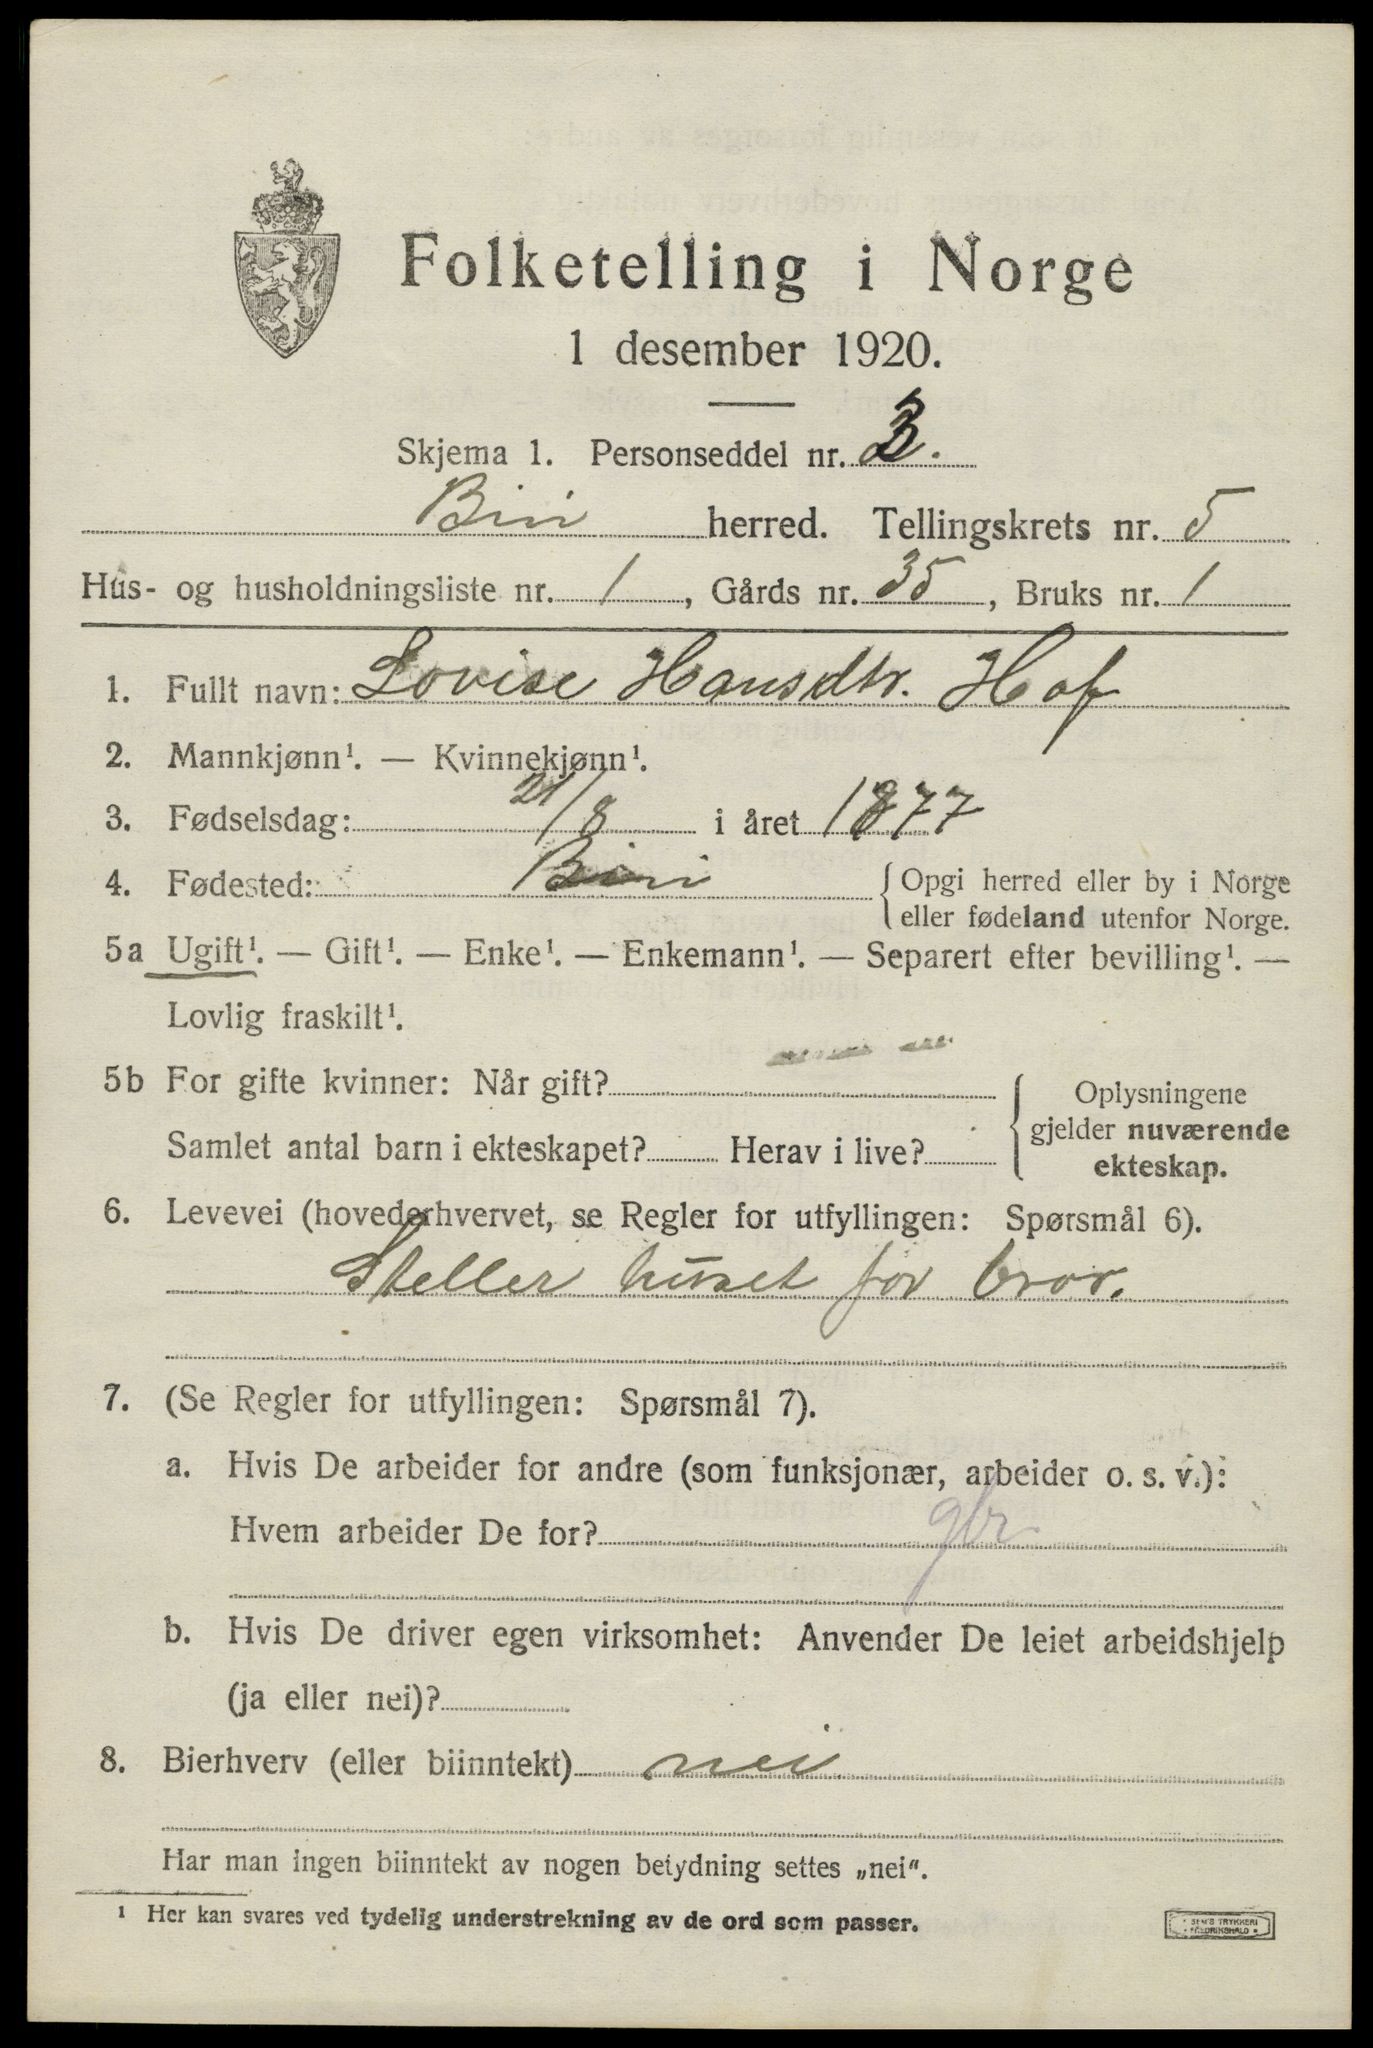 Folketelling i Norge
1 desember 1920.
Skjema 1. Personseddel nr. 3.
Biri herred. Tellingskrets nr. 5
Hus- og husholdningsliste nr. 1, Gårds nr. 35, Bruks nr. 1
1. Fullt navn: Lovise Hansdtr. Hof
2. Mannkjønn¹. — Kvinnekjønn¹.
3. Fødselsdag: 21/8 i året 1877
4. Fødested: Biri {Opgi herred eller by i Norge
eller fødeland utenfor Norge.
5a Ugift¹. — Gift¹. — Enke¹. — Enkemann¹. — Separert efter bevilling¹. —
Lovlig fraskilt¹.
5b For gifte kvinner: Når gift?
Samlet antal barn i ekteskapet? Herav i live?
Oplysningene
gjelder nuværende
ekteskap.
6. Levevei (hovederhvervet, se Regler for utfyllingen: Spørsmål 6).
Steller huset for bror.
7. (Se Regler for utfyllingen: Spørsmål 7).
a. Hvis De arbeider for andre (som funksjonær, arbeider o. s. v.):
Hvem arbeider De for? gbr
b. Hvis De driver egen virksomhet: Anvender De leiet arbeidshjelp
(ja eller nei)?
8. Bierhverv (eller biinntekt) nei
Har man ingen biinntekt av nogen betydning settes „nei“.
¹ Her kan svares ved tydelig understrekning av de ord som passer.
SEM'S TRYKKERI
FREDRIKSHALD